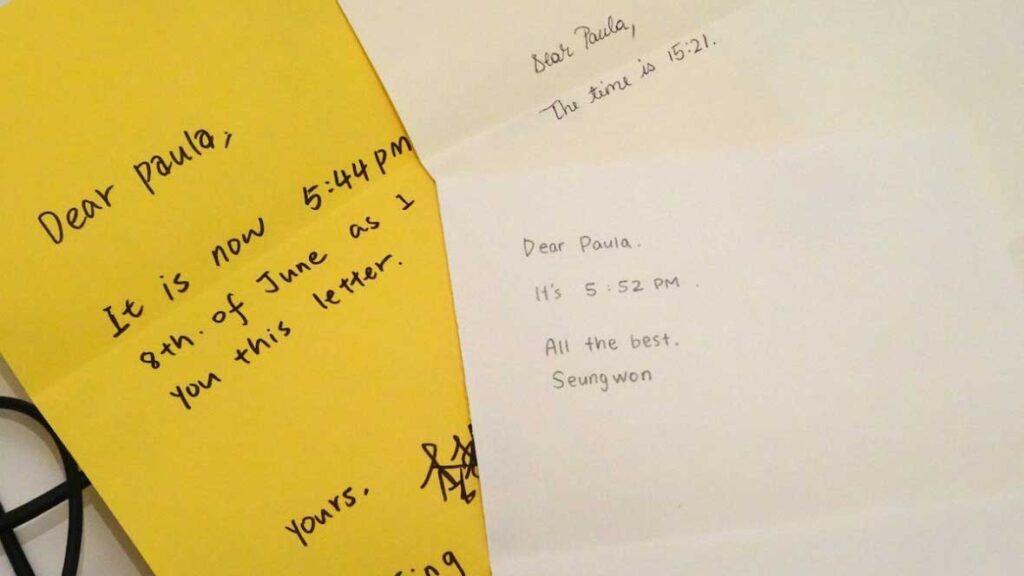 Dear paula,
It is now 5:44 pm
8th. of June as I
you this letter.
yours.
Dear Paula,
The time is 15:21.
Dear Paula.
It's 5:52 PM.
All the best.
Seungwon